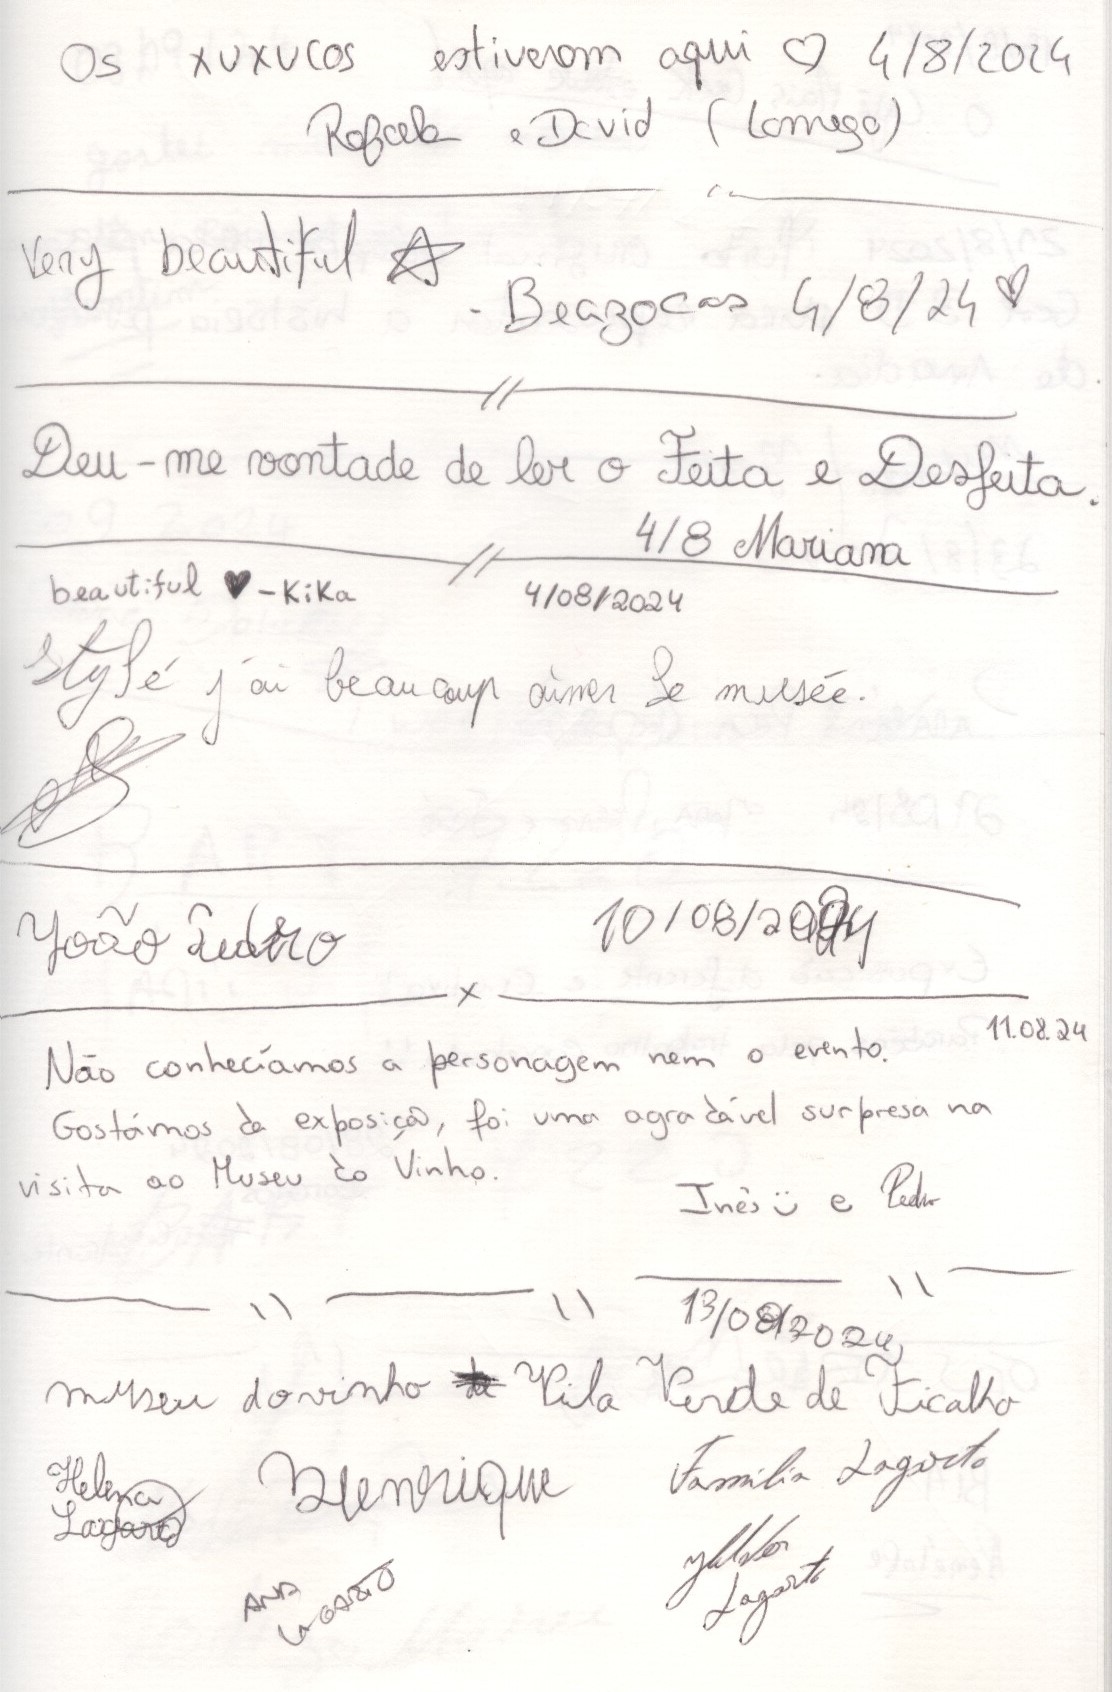 Os xuxucos estiveram aqui ♡ 4/8/2024
Rafaela e David (Lamego)
Very beautiful ☆
- Beazocas 4/8/24 ♡
Deu-me vontade de ler o Feita e Desfeita.
4/8 Mariana
beautiful ♥ - KiKa 4/08/2024
Stylé j'ai beaucoup aimer le musée.
João Pedro 10/08/2024
11.08.24
Não conhecíamos a personagem nem o evento.
Gostámos da exposição, foi uma agradável surpresa na
visita ao Museu do Vinho.
Inês ü e Pedro
13/08/2024,
museu do vinho Vila Verde de Ficalho
Helena
Lagarto
Henrique
Família Lagarto
Ana
Lagarto
Lagarto